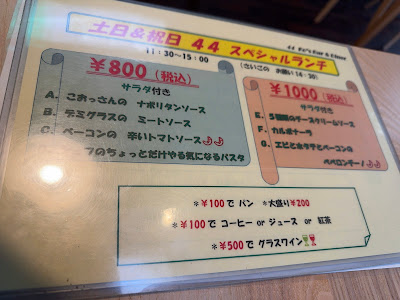 土日&祝日 44 スペシャルランチ
11:30~15:00
¥800(税込)
サラダ付き
A. こおっさんの ナポリタンソース
B. デミグラスの ミートソース
C. ベーコンの 辛いトマトソース
フのちょっとだけやる気になるパスタ
¥1000(税込)
サラダ付き
E. 5種類のチーズクリームソース
F. カルボナーラ
G. エビとホタテとベーコンの
ペペロンチーノ
*¥100で パン *大盛り¥200
*¥100で コーヒー or ジュース or 紅茶
*¥500で グラスワイン